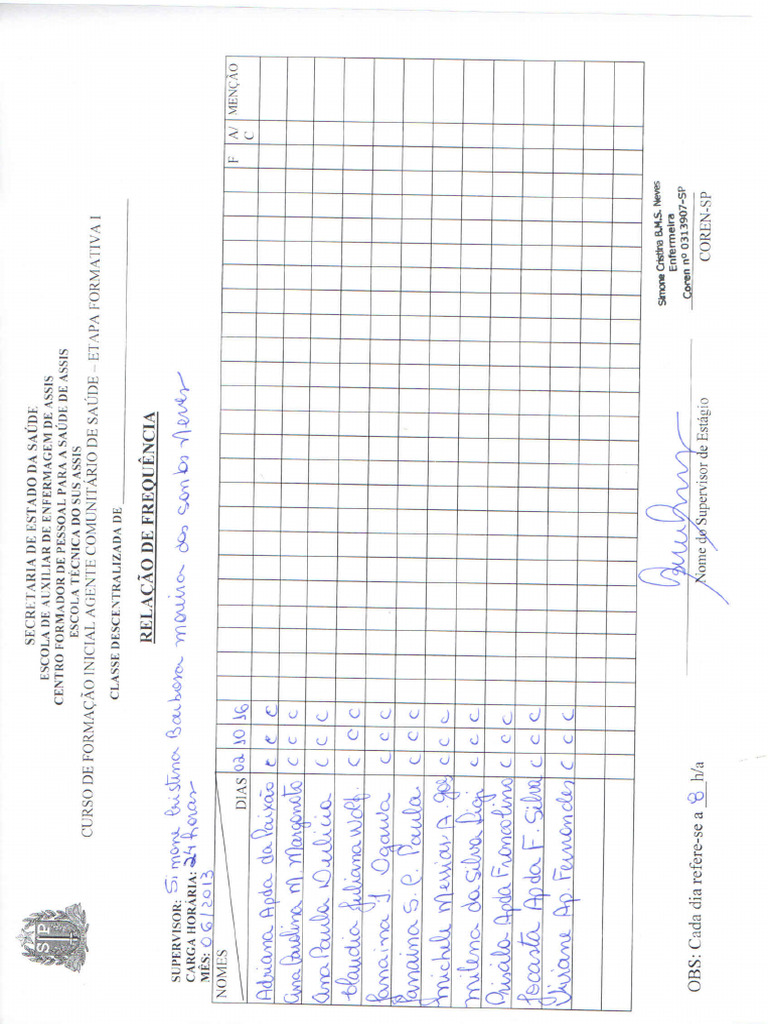 SP
SECRETARIA DE ESTADO DA SAÚDE
ESCOLA DE AUXILIAR DE ENFERMAGEM DE ASSIS
CENTRO FORMADOR DE PESSOAL PARA A SAÚDE DE ASSIS
ESCOLA TÉCNICA DO SUS ASSIS
CURSO DE FORMAÇÃO INICIAL AGENTE COMUNITÁRIO DE SAÚDE – ETAPA FORMATIVA I
CLASSE DESCENTRALIZADA DE
RELAÇÃO DE FREQUÊNCIA
SUPERVISOR: Simone Cristina Barbosa Moreira dos Santos Neves
CARGA HORÁRIA: 24 horas
MÊS: 06/2013
NOMES DIAS 02 10 16 F A/C MENÇÃO
Adriana Apda da Paixão C C C
Ana Paulina M. Margonoto C C C
Ana Paula C C C
Claudia Juliana Wolf. C C C
Janaina Y. Ogawa C C C
Janaina S. C. Paula C C C
Michele Messias A. Goes C C C
Milena da Silva C C C
Priscila Apda Francolino C C C
Jocasta Apda F. Silva C C C
Viviane Ap. Fernandes C C C
OBS: Cada dia refere-se a 8 h/a
Nome do Supervisor de Estágio
Simone Cristina B.M.S. Neves
Enfermeira
Coren nº 0313907-SP
COREN-SP